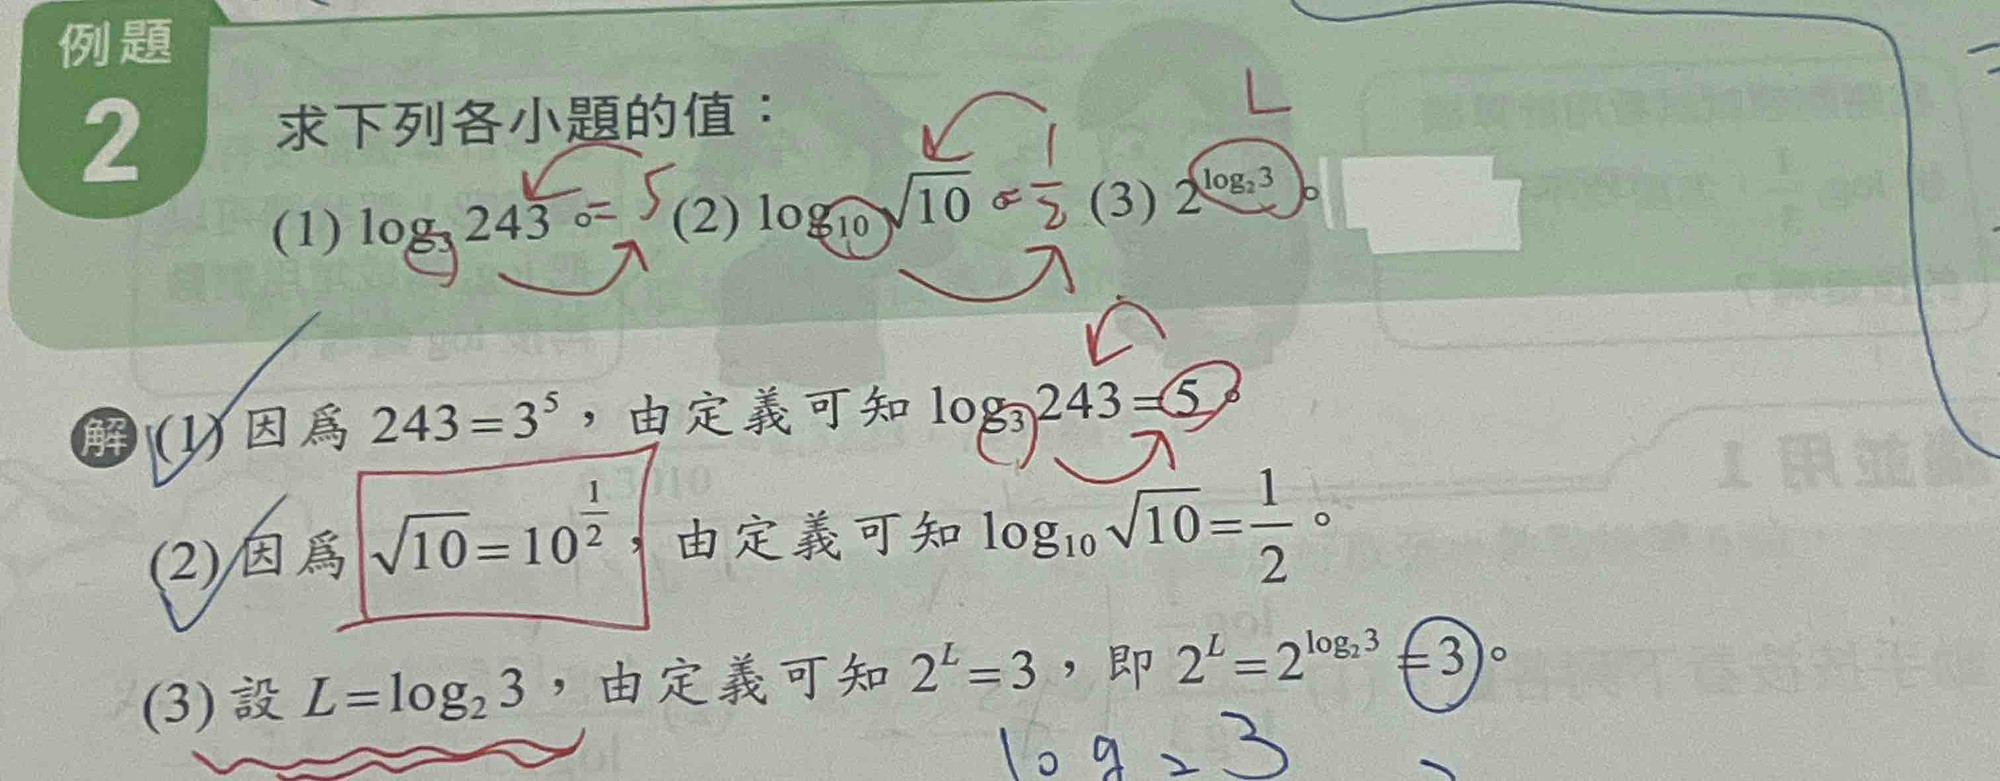 例題
2
求下列各小題的值：
L
(1) log₃ 243。= 5 (2) log₁₀ √10 = 1/2 (3) 2^(log₂ 3)。
解 (1) 因為 243 = 3⁵，由定義可知 log₃ 243 = 5。
(2) 因為 √10 = 10^(1/2)，由定義可知 log₁₀ √10 = 1/2。
(3) 設 L = log₂ 3，由定義可知 2^L = 3，即 2^L = 2^(log₂ 3) = 3。
log₂ 3